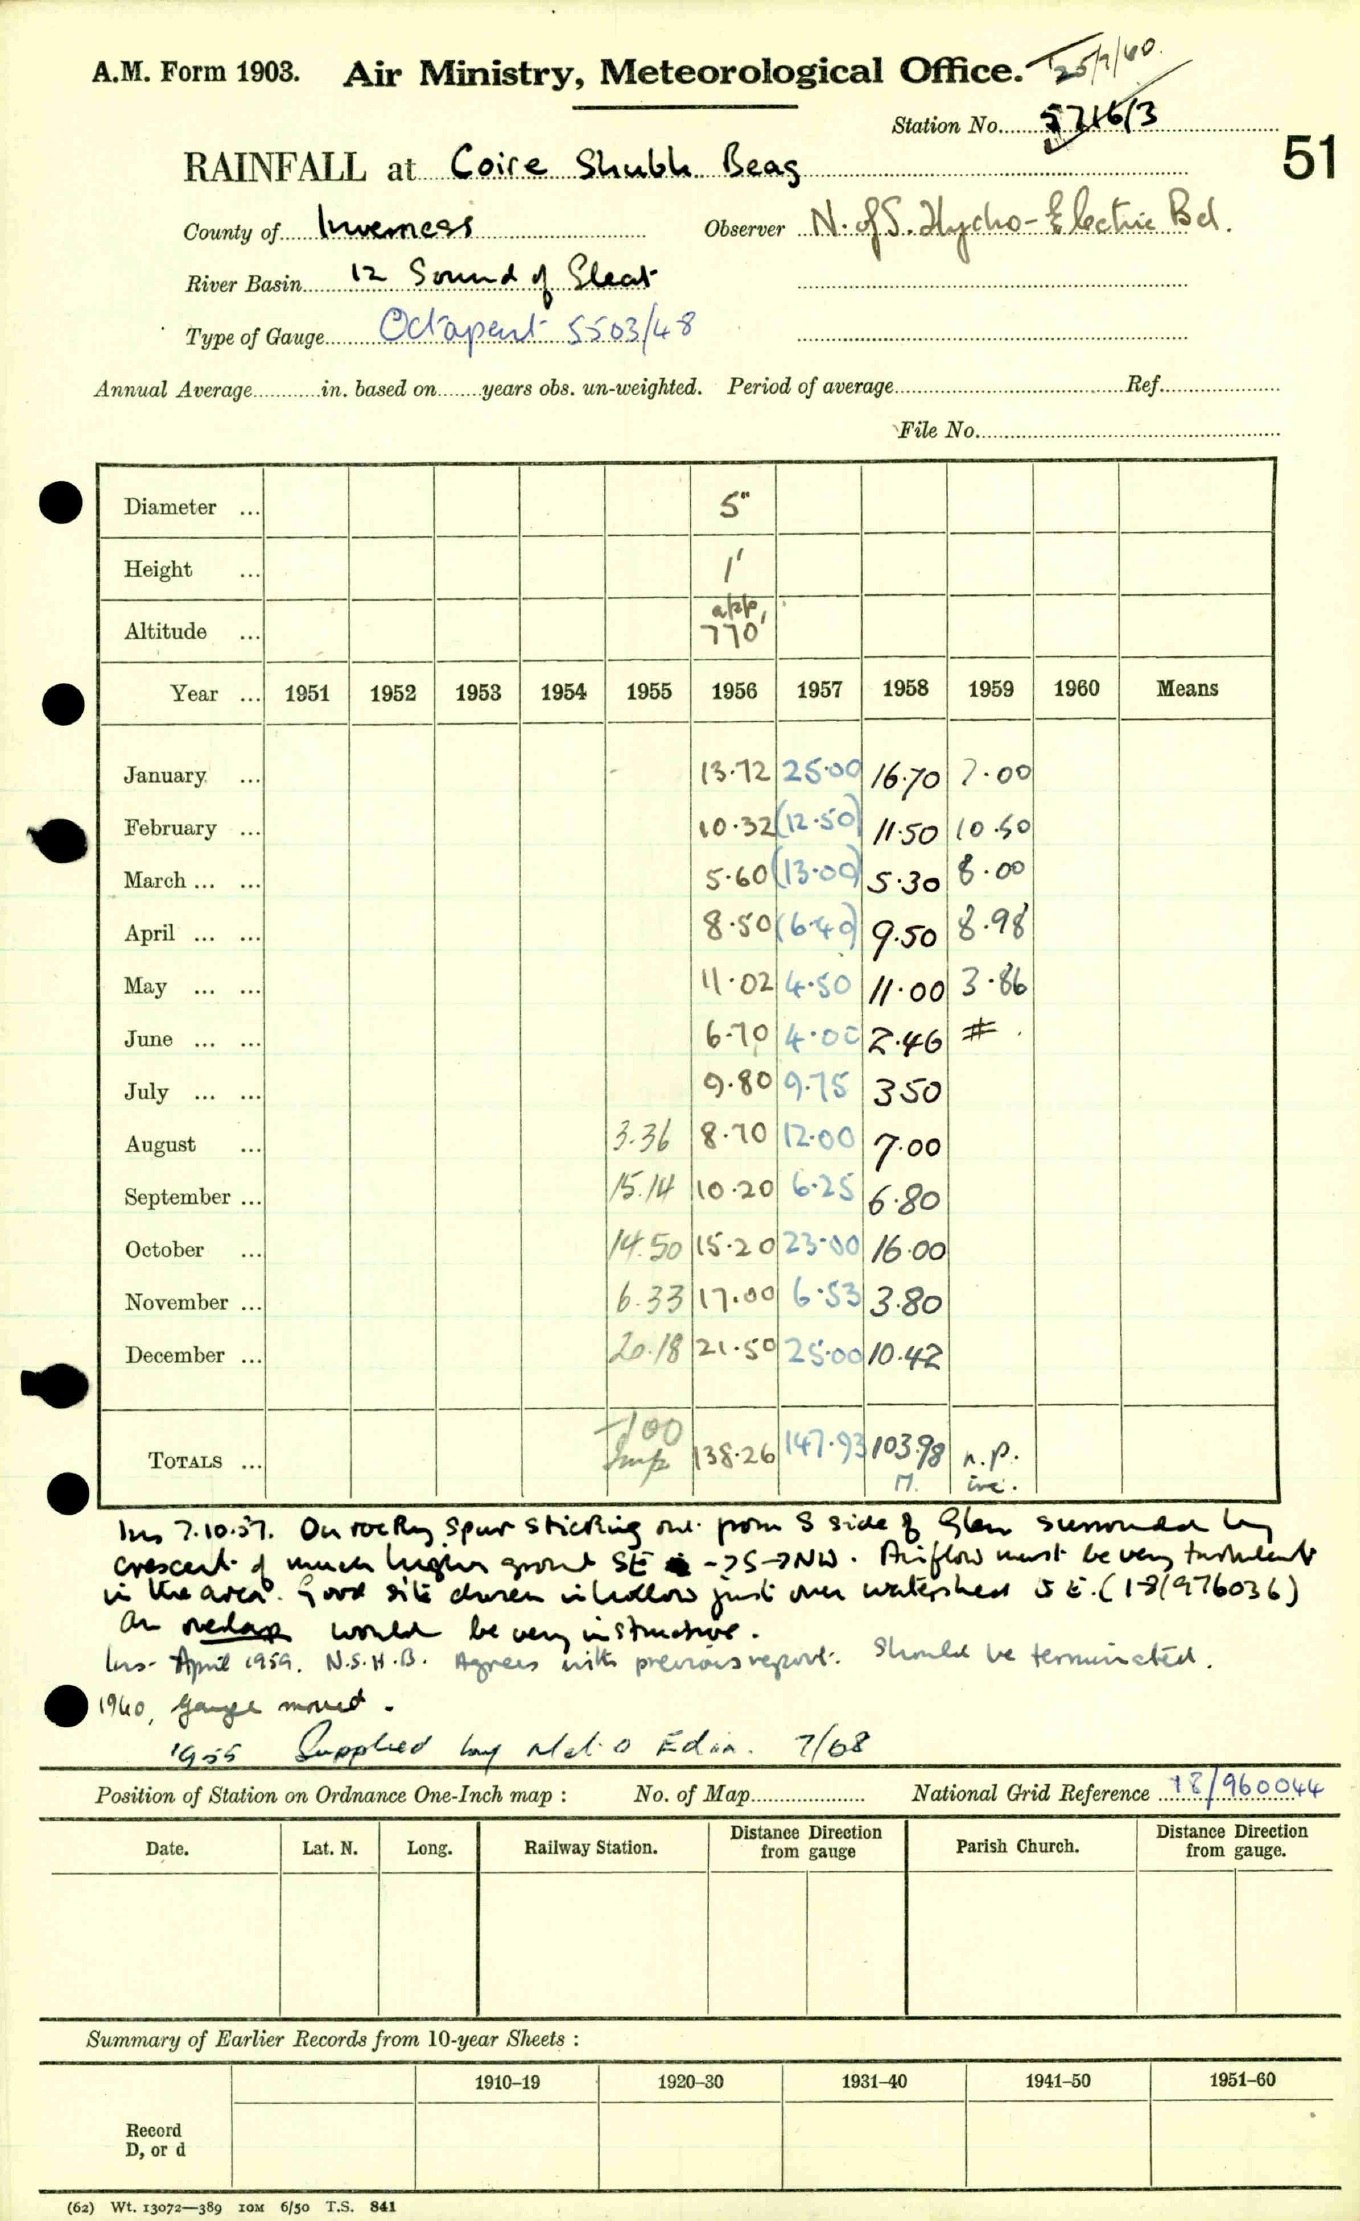 A.M. Form 1903. Air Ministry, Meteorological Office. 25/7/60.
Station No. 5716/3
51
RAINFALL at Coire Shubh Beag
County of Inverness Observer N. of S. Hydro-Electric Bd.
River Basin 12 Sound of Sleat
Type of Gauge Octapent 5503/48
Annual Average in. based on years obs. un-weighted. Period of average Ref.
File No.
Diameter ... 5"
Height ... 1'
Altitude ... app, 770'
Year ... 1951 1952 1953 1954 1955 1956 1957 1958 1959 1960 Means
January ... - 13.72 25.00 16.70 7.00
February ... 10.32 (12.50) 11.50 10.50
March ... ... 5.60 (13.00) 5.30 8.00
April ... ... 8.50 (6.40) 9.50 8.98
May ... ... 11.02 4.50 11.00 3.86
June ... ... 6.70 4.00 2.46 # .
July ... ... 9.80 9.75 3.50
August ... 3.36 8.70 12.00 7.00
September ... 15.14 10.20 6.25 6.80
October ... 14.50 15.20 23.00 16.00
November ... 6.33 17.00 6.53 3.80
December ... 20.18 21.50 25.00 10.42
100
TOTALS ... Imp 138.26 147.93 103.98 n.p.
M. inc.
Ins 7.10.57. On rocky spur sticking out from S side of Glen surrounded by
crescent of much higher ground SE ->S->NW. Airflow must be very turbulent
in the area. Good site chosen in hollow just over watershed SE. (18/976036)
An overlap would be very instructive.
Ins. April 1959. N.S.H.B. Agrees with previous report. Should be terminated.
1960, gauge moved.
1955 Supplied by Met O Edin. 7/68
Position of Station on Ordnance One-Inch map : No. of Map National Grid Reference 18/960044
Date. Lat. N. Long. Railway Station. Distance Direction from gauge Parish Church. Distance Direction from gauge.
Summary of Earlier Records from 10-year Sheets :
1910–19 1920–30 1931–40 1941–50 1951–60
Record
D, or d
(62) Wt. 13072—389 10M 6/50 T.S. 841